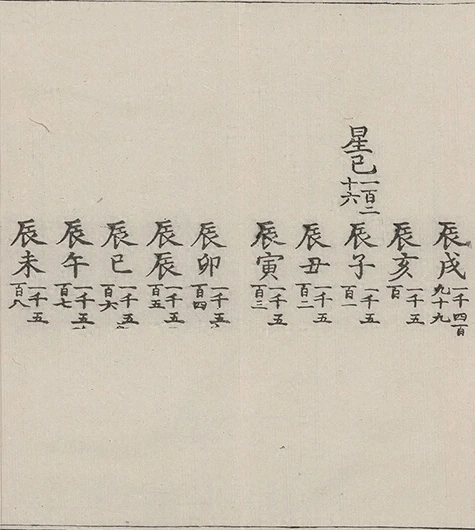 辰戌一千四百九十九
辰亥一千五百
星己一百二十六
辰子一千五百一
辰丑一千五百二
辰寅一千五百三
辰卯一千五百四
辰辰一千五百五
辰巳一千五百六
辰午一千五百七
辰未一千五百八